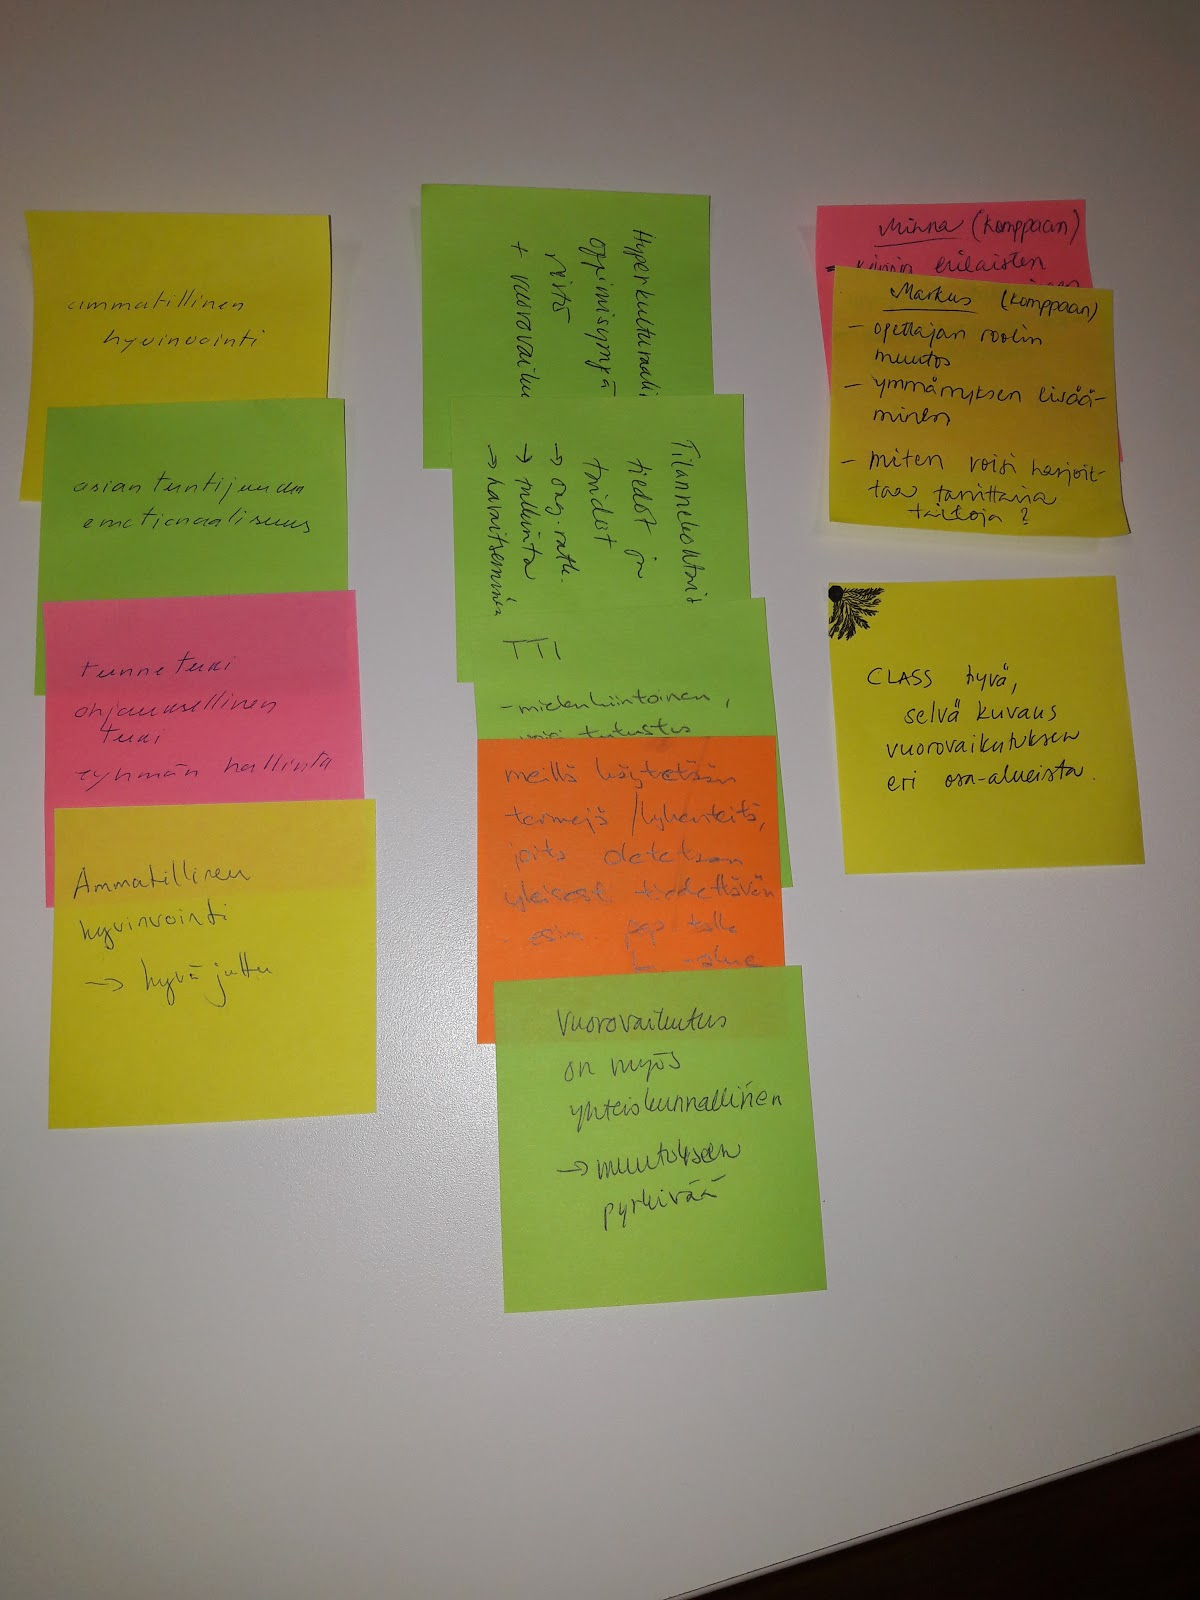 ammatillinen
hyvinvointi
asiantuntijuuden
emotionaalisuus
tunnetuki
ohjauksellinen
tuki
ryhmän hallinta
Ammatillinen
hyvinvointi
→ hyvä juttu
Hyperkulturaali
oppimisympä
ristö
+ vuorovaiku
Tilannekohtais
tiedot ja
taidot
→ ong.ratk.
→ tulkinta
→ havaitseminen
TTI
- mielenkiintoinen,
tutustus
meillä käytetään
termejä /lyhenteitä,
joita oletetaan
yleisesti tiedettävän
- esim. pop talk
-alue
Vuorovaikutus
on myös
yhteiskunnallinen
→ muutokseen
pyrkivää
Minna (komppaan)
erilaisten
Markus (komppaan)
- opettajan roolin
muutos
- ymmärryksen lisää-
minen
- miten voisi harjoit-
taa tarvittavia
taitoja?
CLASS hyvä,
selvä kuvaus
vuorovaikutuksen
eri osa-alueista.